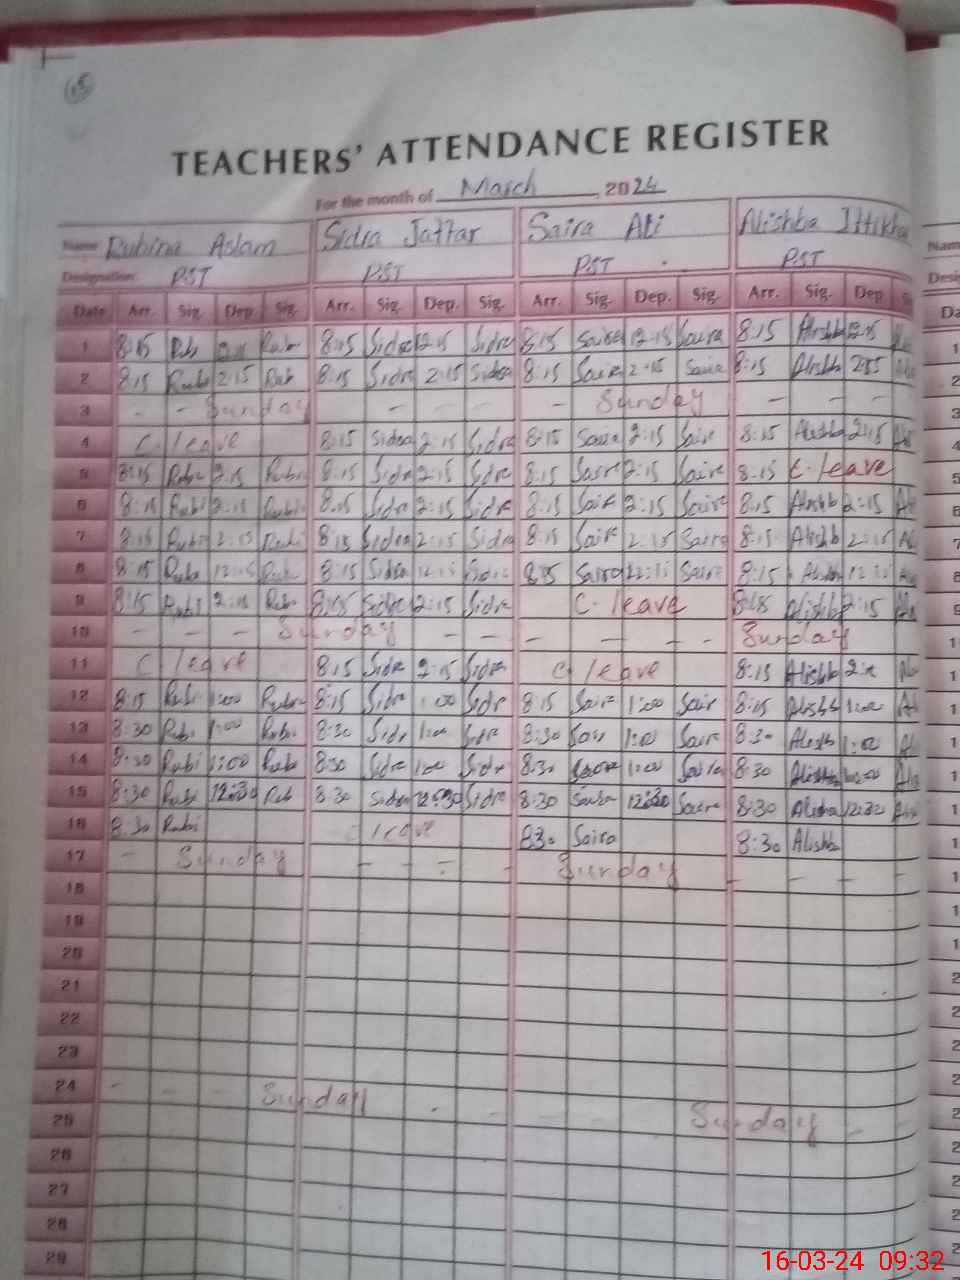 15
TEACHERS' ATTENDANCE REGISTER
For the month of March, 2024
Name Rubina Aslam Sidra Jaffar Saira Ali Alishba Iftikha Nam
Designation: PST PST PST PST Desi
Date Arr. Sig. Dep. Sig. Arr. Sig. Dep. Sig. Arr. Sig. Dep. Sig. Arr. Sig. Dep Da
1 8:15 Rub Rub 8:15 Sidra 12:15 Sidra 8:15 Saira 12:15 Saira 8:15 Alishb 12:15 1
2 8:15 Rubi 2:15 Rub 8:15 Sidra 2:15 Sidra 8:15 Saira 2:15 Saira 8:15 Alishb 2
3 - - Sunday - - - - Sunday - - - 3
4 C. leave 8:15 Sidra 2:15 Sidra 8:15 Saira 2:15 Saire 8:15 Alishb 2:15 4
5 8:15 Rubi 2:15 Rubi 8:15 Sidra 2:15 Sidre 8:15 Saire 2:15 Saire 8:15 C. leave 5
6 8:15 Rubi 2:15 Rubi 8:15 Sidra 2:15 Sidre 8:15 Saire 2:15 Saire 8:15 Alishb 2:15 6
7 8:15 Rubi 2:15 Rubi 8:15 Sidra 2:15 Sidra 8:15 Saire 2:15 Saira 8:15 Alishb 2:15 7
8 8:15 Rub 12:15 Rub 8:15 Sidra Sidr 8:15 Saira Saire 8:15 Alishb 8
9 8:15 Rubi 2:15 Rub 8:15 Sidre 2:15 Sidre C. leave 8:15 Alishb 2:15 9
10 - - - Sunday - - - - - Sunday 1
11 C. leave 8:15 Sidra 2:15 Sidra C. leave 8:15 Alishb 1
12 8:15 Rubi 1:00 Rubi 8:15 Sidre 1:00 Sidr 8:15 Saire 1:00 Sair 8:15 Alishb 1:00 1
13 8:30 Rubi 1:00 Rubi 8:30 Sidr 1:00 Sidre 8:30 Sair 1:00 Saire 8:30 Alishb 1:00 1
14 8:30 Rubi 1:00 Rubi 8:30 Sidre 1:00 Sidre 8:30 1:00 Saira 8:30 Alishba 1:00 1
15 8:30 Rubi 12:30 Rub 8:30 Sidra 12:30 Sidre 8:30 Saira 12:30 Saire 8:30 Alisha 12:30 1
16 8:30 Rubi C leave 8:30 Saira 8:30 Alishb 1
17 - Sunday - - - - Sunday - - - - 1
18 1
19 1
20 2
21 2
22 2
23 2
24 - - - Sunday 2
25 - - - - Sunday - - 2
26 2
27 2
28 2
29 2
16-03-24 09:32